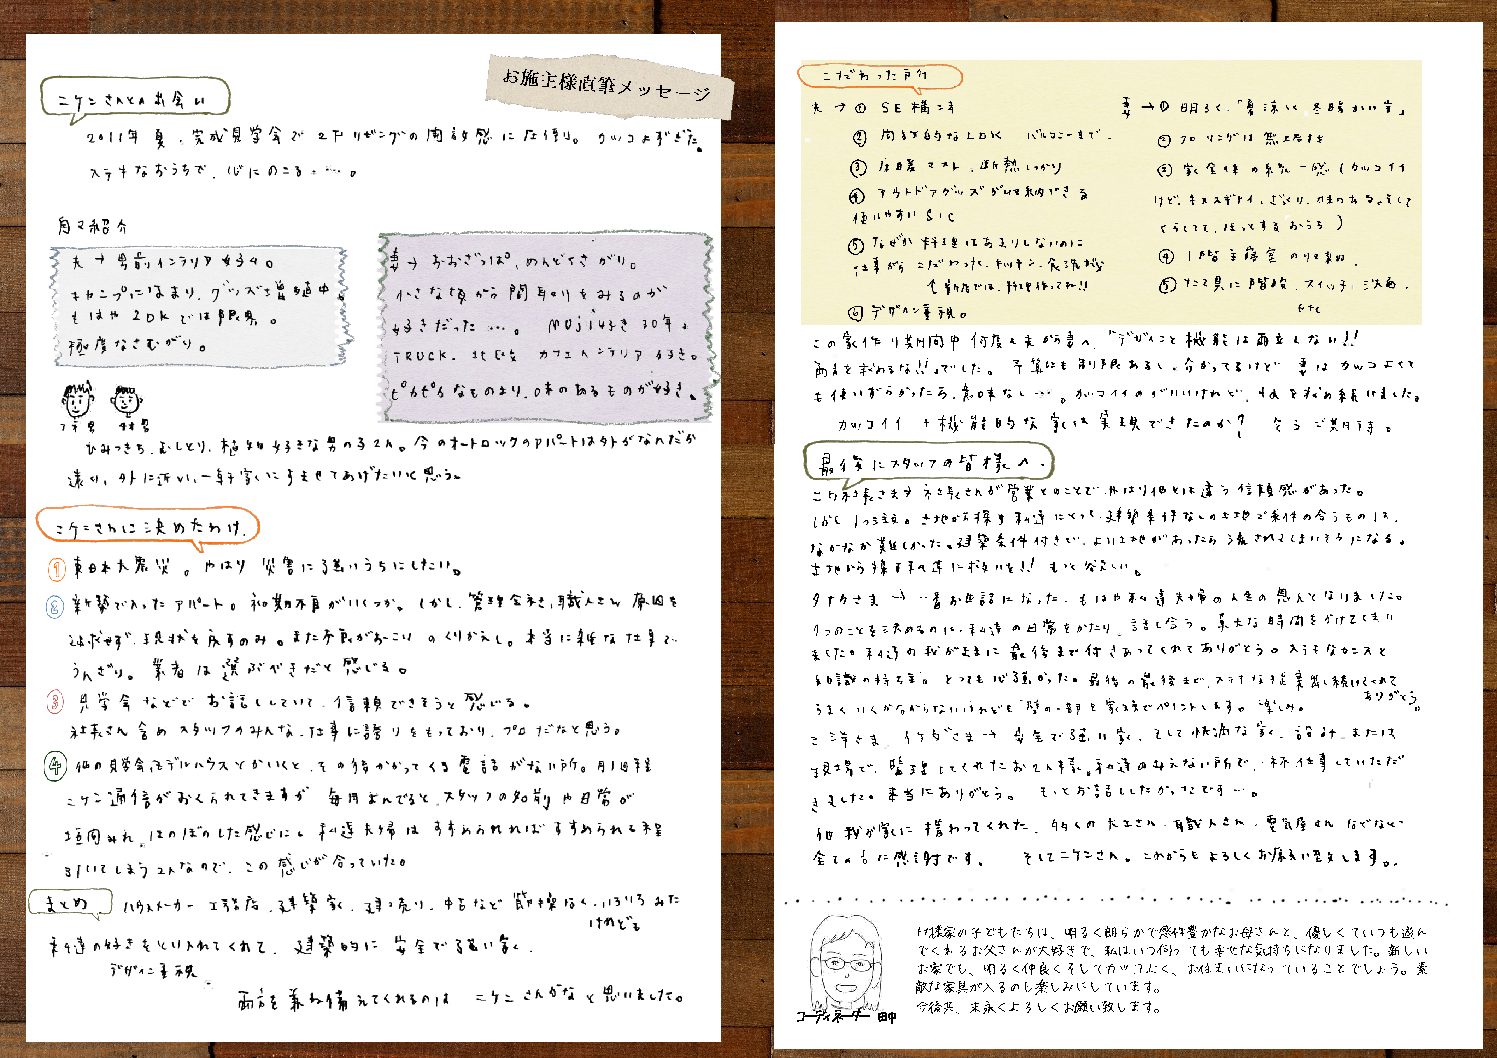 お施主様直筆メッセージ
ニケンさんとの出会い
2011年 夏、完成見学会で2Fリビングの開放感に圧倒。カッコよすぎた。
ステキなおうちで、心にのこる……。
自己紹介
夫→男前インテリア好み。
キャンプにはまり、グッズ増殖中。
もはや2DKでは限界。
極度なさむがり。
妻→おおざっぱ、めんどくさがり。
小さな頃から間取りをみるのが
好きだった…。 MUJI好き30年。
TRUCK. カフェインテリア好き。
ピカピカなものより、味のあるものが好き。
ひみつきち、むしとり、植物好きな男の子2人。今のオートロックのアパートは外がなんだか
遠い。外に近い一軒家にすませてあげたいと思う。
ニケンさんに決めたわけ.
① 東日本大震災。やはり災害に強いうちにしたい。
② 新築で入ったアパート。初期不良がいくつか。しかし、管理会社、職人さん 原因を
追求せず、現状を戻すのみ。また不具合がおこり のくりかえし。本当に雑な仕事で
うんざり。業者は選ぶべきだと感じる。
③ 見学会などで お話ししていて、信頼できそうと感じる。
社長さん含めスタッフのみんな、仕事に誇りをもっており、プロだなと思う。
④ 他の見学会、モデルハウスとかいくと、その後かかってくる電話がない所。月1回程
ニケン通信がおくられてきますが 毎月よんでると、スタッフの名前や日常が
垣間みれ、ほのぼのした感じに。私達夫婦は すすめられればすすめられる程
引いてしまう2人なので、この感じが合っていた。
まとめ
ハウスメーカー 工務店、建築家、建て売り、中古など 節操なく、いろいろみた
けれども
私達の好きをとり入れてくれて、建築的に 安全で強い家、
デザイン重視
両方を兼ね備えてくれるのは ニケンさんかな と思いました。
こだわった所
夫→① SE構法
② 開放的なLDK バルコニーまで.
③ 床暖マスト、断熱しっかり
④ アウトドアグッズが収納できる
使いやすいSIC
⑤ なぜか料理はあまりしないのに
仕事がらこだわった、キッチン、食洗機
⑥ デザイン重視。
妻→① 明るく、「夏涼しく 冬暖かい家」
② フローリングは無垢材
③ 家全体の統一感（カッコイイ
けど、キメスギナイ、ざっくり、味のある。そして
くらしてて、ほっとするおうち）
④ 1階主寝室のり収納.
⑤ たて具に階段、スイッチ、洗面.
etc
この家作り期間中 何度も夫から妻へ 「デザインと機能は両立しない!!
両方を求めるな!!」でした。 予算にも制限あるし、分かってるけど 妻は カッコよくて
も使いづらかったら、意味なし…。カッコイイのがいいけれど、収を求め続けました。
カッコイイ + 機能的な家は 実現できたのか? 乞うご期待。
最後にスタッフの皆様へ.
社長さま→社長さんが営業とのことで、やはり他とは違う信頼感があった。
なかなか難しかった。建築条件付きで、より土地があったら流されてしまいそうになる。
タナカさま→一番お世話になった、もはや私達夫婦の人生の恩人となりました。
1つのことを決めるのに、私達の日常をかたり、話し合う。莫大な時間をかけてしまい
ました。私達の我がままに 最後まで付きあってくれてありがとう。ステキなセンスと
知識の持ち主。とっても心強かった。最後の最後まで、ステキな提案出し続けてくれて
ありがとう。
うまくいくか分からないけれども「壁の一部」を家族でペイントします。楽しみ。
イケダさま→安全で強い家、そして快適な家、設計、または
現場で、監理してくれたお2人様。私達のみえない所で、一杯仕事していただ
きました。本当にありがとう。もっとお話ししたかったです…。
他 我が家に携わってくれた、多くの大工さん、職人さん、電気屋さん などなど
全ての方に感謝です。 そしてニケンさん。これからもよろしくお願い致します。
家の子どもたちは、明るく朗らかで感性豊かなお母さんと、優しくていつも遊ん
でくれるお父さんが大好きで、私はいつ伺っても幸せな気持ちになりました。新しい
お家でも、明るく仲良くそしてカッコよく、お住まいになっていることでしょう。素
敵な家具が入るのも楽しみにしています。
今後共、末永くよろしくお願い致します。
コーディネーター 田中